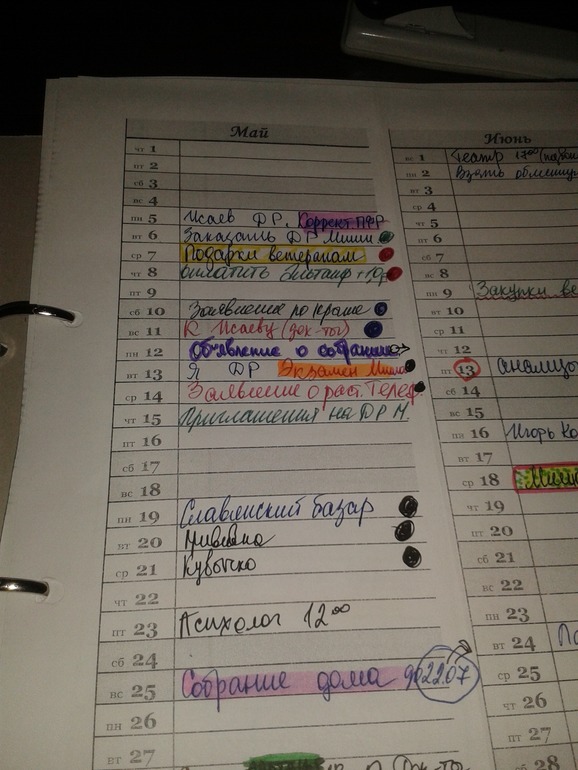 Май
чт 1
пт 2
сб 3
вс 4
пн 5 Исаев ДР. Коррект. ПФР
вт 6 Заказать ДР Миши
ср 7 Подарки ветеранам
чт 8 оплатить
пт 9
сб 10 Заявление по краже
вс 11 К Исаеву (док-ты)
пн 12 Объявление о собрании
вт 13 Я ДР Экзамен
ср 14 Заявление о раст. Телеф.
чт 15 Приглашения на ДР М.
пт 16
сб 17
вс 18
пн 19 Славянский базар
вт 20
ср 21
чт 22
пт 23 Психолог 12⁰⁰
сб 24
вс 25 Собрание дома до 22.07
пн 26
вт 27
Июнь
вс 1 Театр 17⁰⁰
пн 2 Взять
вт 3
ср 4
чт 5
пт 6
сб 7
вс 8
пн 9 Закупки
вт 10
ср 11
чт 12
пт 13
сб 14
вс 15
пн 16 Игорь
вт 17
ср 18
чт 19
пт 20
сб 21
вс 22
пн 23
вт 24
ср 25
чт 26
пт 27
сб 28